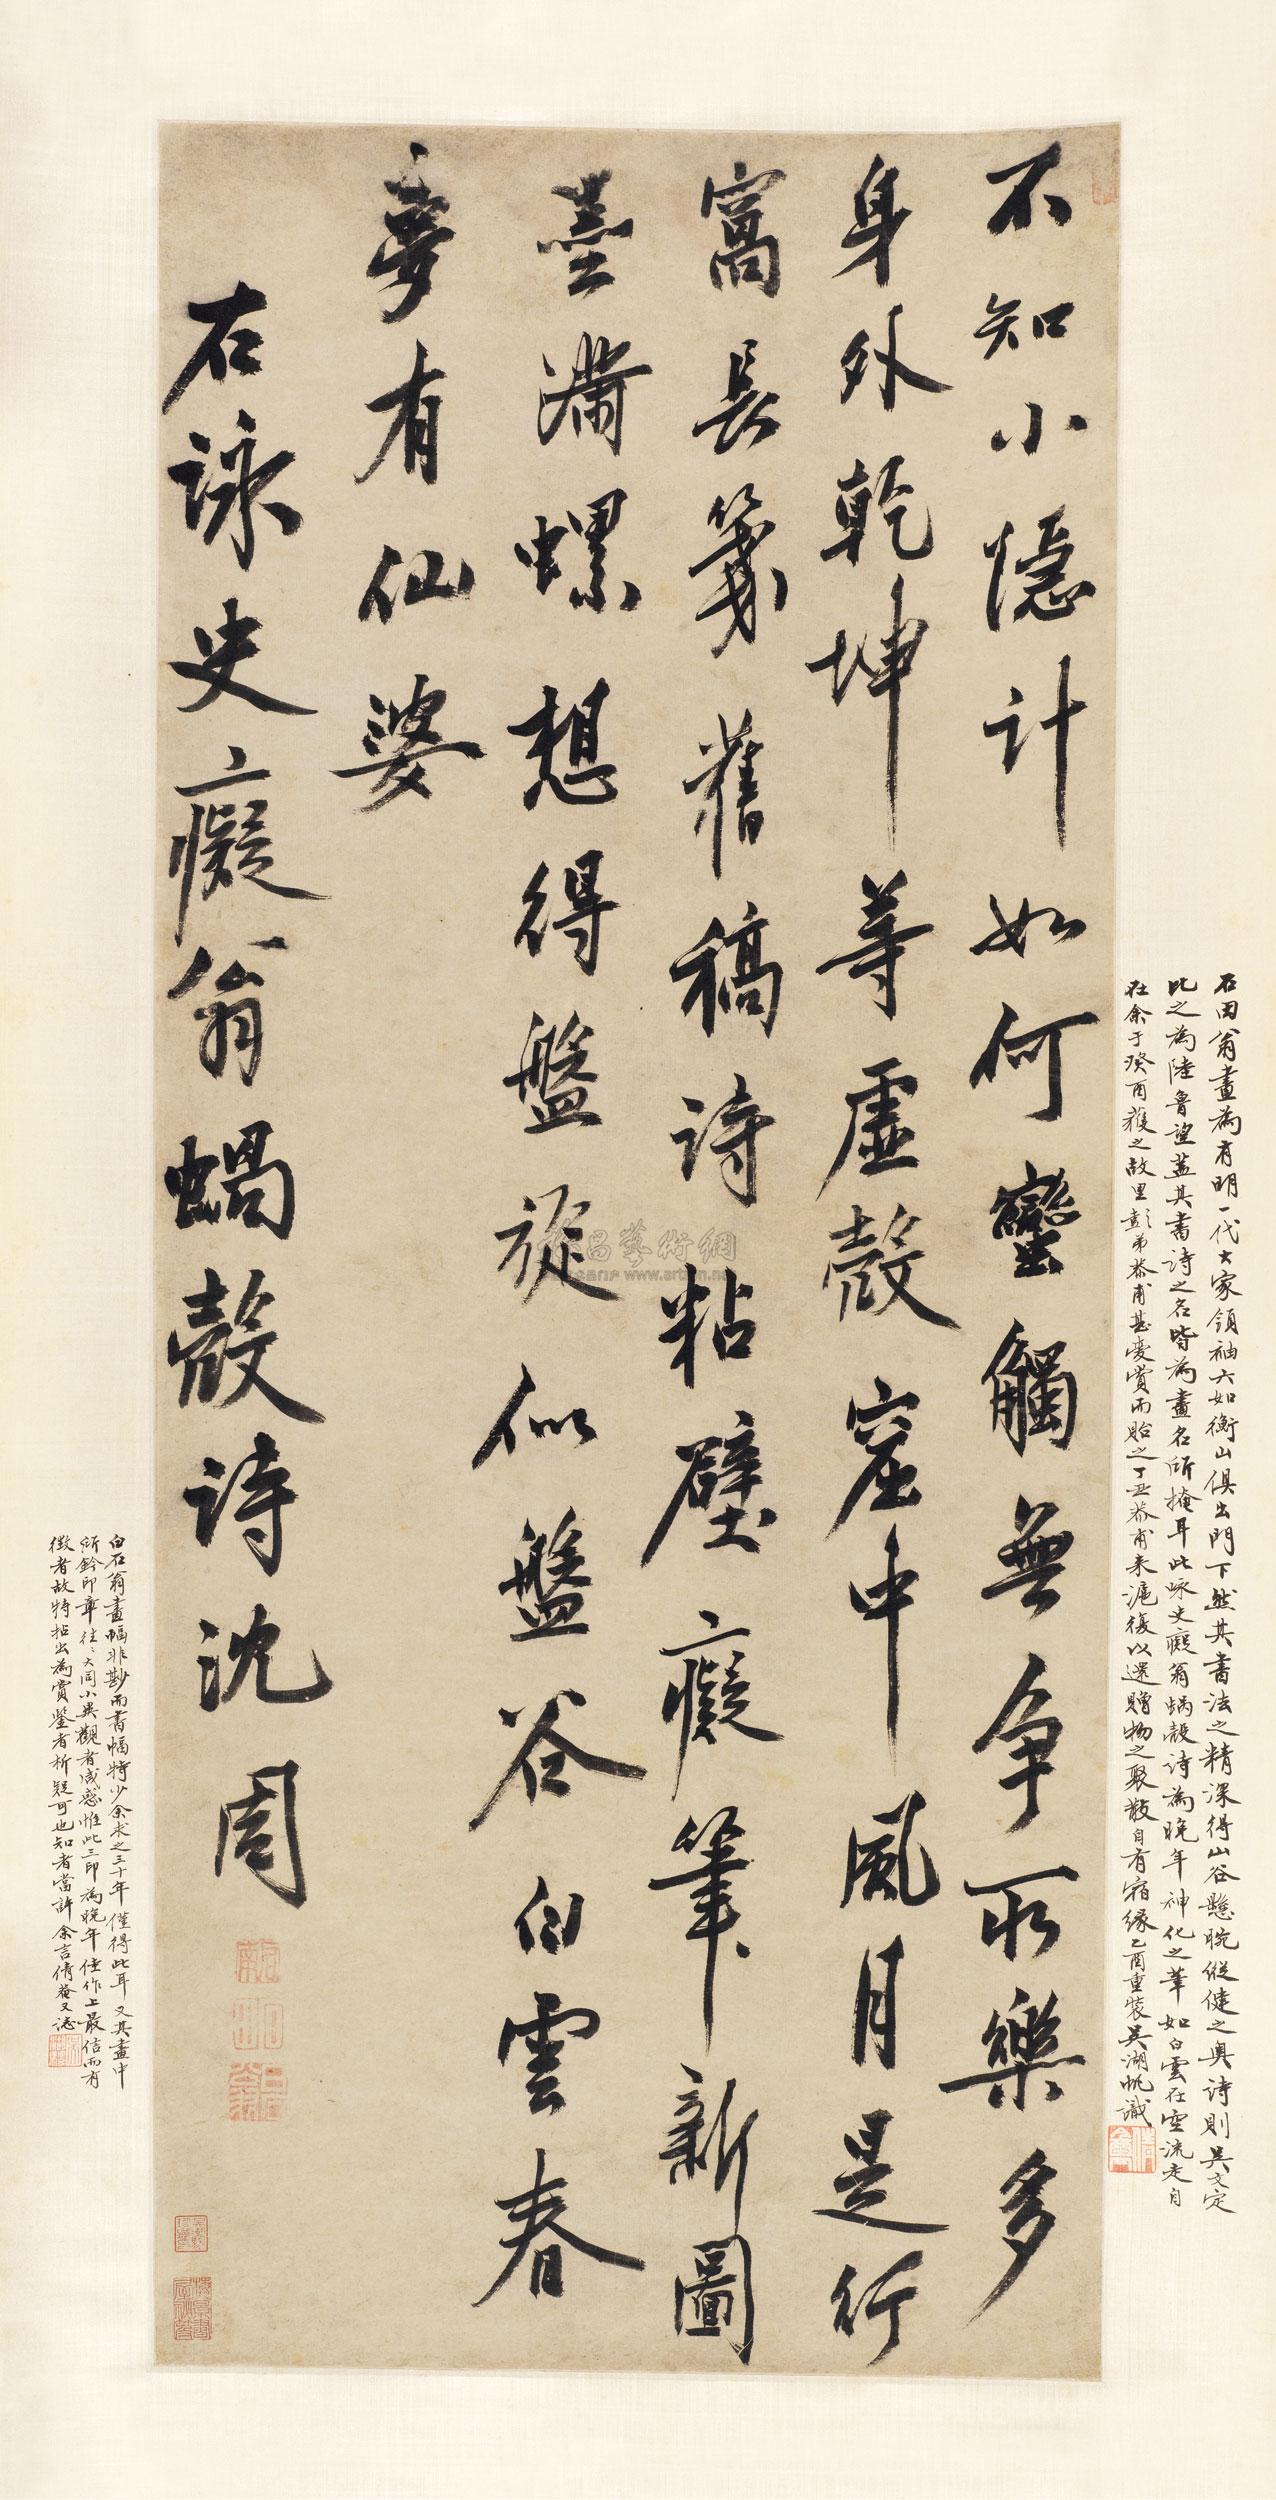 不知小隱計如何蠻觸無爭所樂多
身外乾坤等虛殼窟中風月是行
窩長箋舊稿詩粘壁癡筆新圖
墨滿螺想得盤旋似盤谷白雲春
夢有仙婆
右詠史癡翁蝸殼詩沈周
石田翁畫為有明一代大家領袖六如衡山俱出門下然其書法之精深得山谷懸腕縱健之奧詩則吳文定
比之為陸魯望蓋其書詩之名皆為畫名所掩耳此詠史癡翁蝸殼詩為晚年神化之筆如白雲在空流走自
在余于癸酉獲之故里彭弟恭甫甚愛賞而貽之丁丑恭甫來滬復以還贈物之聚散自有宿緣乙酉重裝吳湖帆識
白石翁畫幅非尠而書幅特少余求之三十年僅得此耳又其畫中
所鈐印章往往大同小異觀者咸惑惟此三印為晚年佳作上最信而有
徵者故特拈出為賞鑒者析疑可也知者當許余言倩菴又誌
www.artron.net